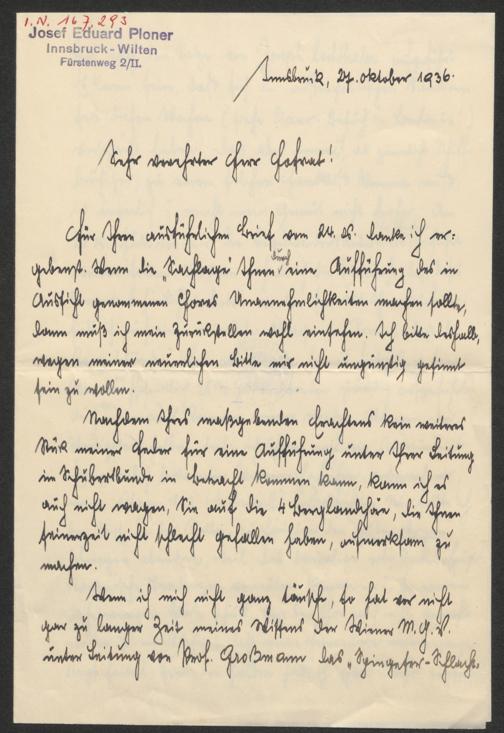 I.N. 167.293
Josef Eduard Ploner
Innsbruck - Wilten
Fürstenweg 2/II.
Innsbruck, 27. Oktober 1936.
Sehr verehrter Herr Hofrat!
Für Ihren ausführlichen Brief vom 24. ds. danke ich er-
gebenst. Wenn die „Sachlage" Ihnen durch eine Aufführung des in
Aussicht genommenen Chores Unannehmlichkeiten machen sollte,
dann muß ich mein Zurückstellen wohl einsehen. Ich bitte deshalb,
wegen meiner neuerlichen Bitte mir nicht ungünstig gesinnt
sein zu wollen.
Nachdem Ihres maßgebenden Erachtens kein weiteres
Stück meiner Feder für eine Aufführung unter Ihrer Leitung
im Schubertbunde in betracht kommen kann, kann ich es
auch nicht wagen, Sie auf die 4 Berglandchöre, die Ihnen
seinerzeit nicht schlecht gefallen haben, aufmerksam zu
machen.
Wenn ich mich nicht ganz täusche, so hat vor nicht
gar zu langer Zeit meines Wissens der Wiener M.G.V.
unter Leitung von Prof. Großmann das „Spingeser-Schlacht-